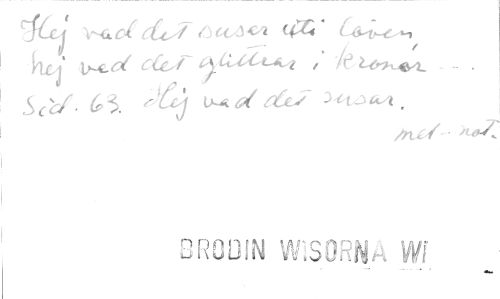 Hej vad det susar uti löven
hej vad det glittrar i kronor ...
Sid. 63. Hej vad det susar.
mel. not.
BRODIN WISORNA WI